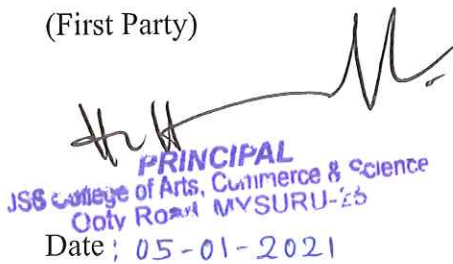 (First Party)
PRINCIPAL
JSS College of Arts, Commerce & Science
Ooty Road MYSURU-25
Date : 05-01-2021